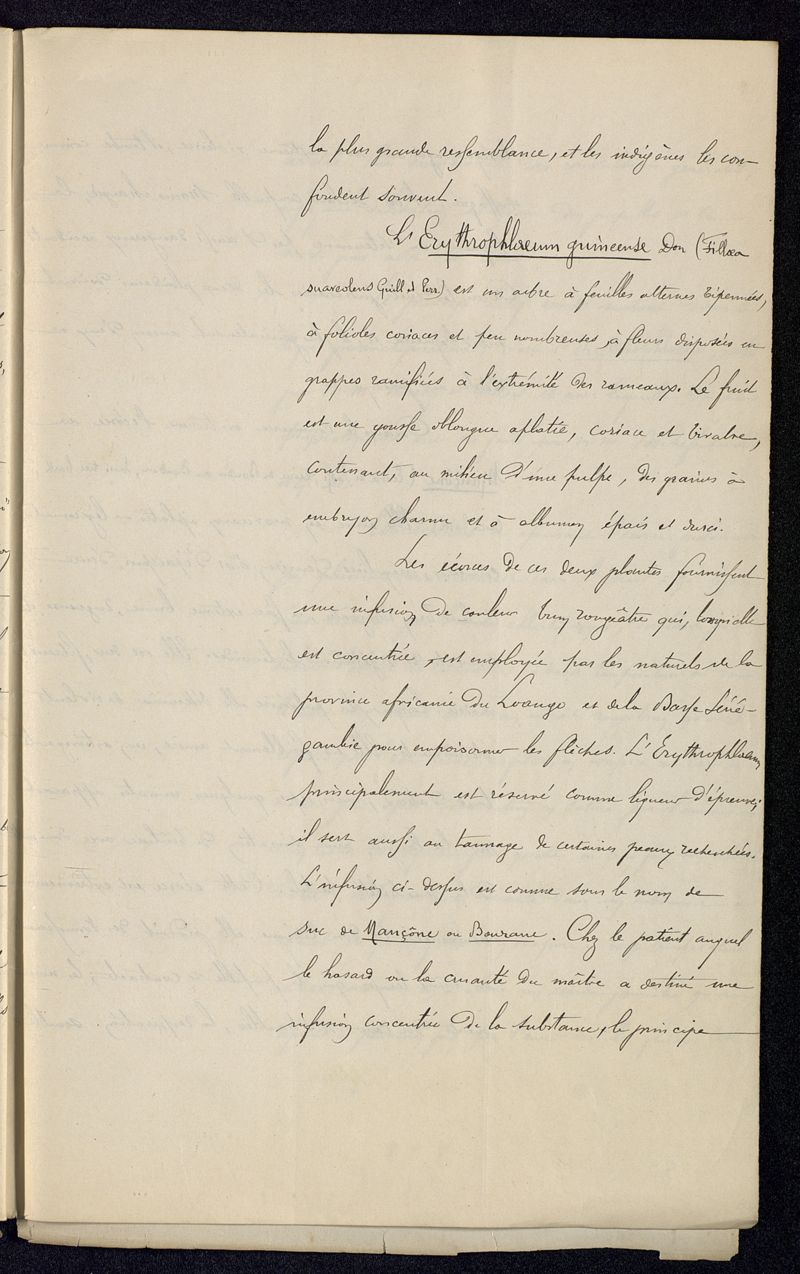 la plus grande ressemblance, et les indigènes les con-
fondent souvent.
L'Erythrophlaeum guineense Don (Fillaea
suaveolens Guill et Perr) est un arbre à feuilles alternes bipennées,
à folioles coriaces et peu nombreuses, à fleurs disposées en
grappes ramifiées à l'extrémité des rameaux. Le fruit
est une gousse oblongue aplatie, coriace et bivalve,
contenant, au milieu d'une pulpe, des graines à
embryon charnu et à albumen épais et durci.
Les écorces de ces deux plantes fournissent
une infusion de couleur brun rougeâtre qui, lorsqu'elle
est concentrée, est employée par les naturels de la
province africaine du Loango et de la Basse Séné-
gambie pour empoisonner les flèches. L'Erythrophlaeum
principalement est réservé comme liqueur d'épreuves;
il sert aussi au tannage de certaines peaux recherchées.
L'infusion ci-dessus est connue sous le nom de
suc de Mançône ou Bourane. Chez le patient auquel
le hasard ou la cruauté du maître a destiné une
infusion concentrée de la substance, le principe